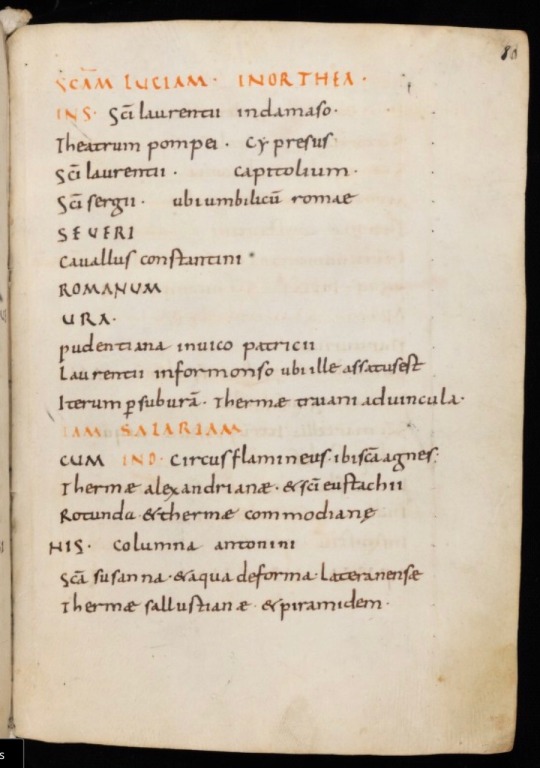 80
SCĀM LUCIAM · INORTHEA ·
INS · Sc̄i laurentii indamaso ·
Theatrum pompei · Cypresus
Sc̄i laurentii · capitolium ·
Sc̄i sergii · ubi umbilicū romae
SEVERI
Cavallus constantini
ROMANUM
URA ·
pudentiana in vico patricii
Laurentii in formonso ubi ille assatus est
Iterum ꝑ suburā · Thermæ traiani ad vincula ·
IAM SALARIAM
CUM IND · Circus flamineus ibi scā agnes ·
Thermæ alexandrianæ · & sc̄i eustachii
Rotunda & thermæ commodianę
HIS · Columna antonini
Scā susanna · & aqua de forma lateranense
Thermæ sallustianæ · & piramidem ·